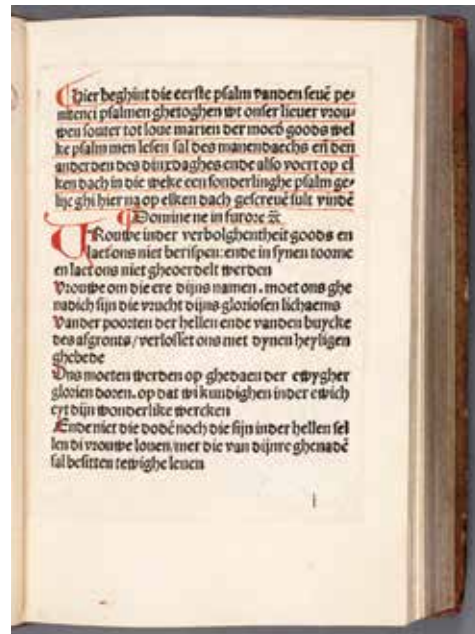 Hier beghint die eerste psalm vanden seuē pe-
nitenci psalmen ghetoghen wt onser lieuer vrou-
wen souter tot loue marien der moed̄ goods wel
ke psalm men lesen sal des manendaechs en̄ den
anderden des dinxdaghes ende also voert op el
ken dach in die weke een sonderlinghe psalm ge-
lijc ghi hier na op elken dach gescreuē sult vindē
Domine ne in furore &c̄
VRouwe inder verbolghentheit goods en
laet ons niet berispen: ende in synen toorne
en laet ons niet gheoerdelt werden
Vrouwe om die ere dijns namen. moet ons ghe
nadich sijn die vrucht dijns gloriosen lichaems
Vander poorten der hellen ende vanden buycke
des afgronts/verlosset ons met dynen heyligen
ghebede
Ons moeten werden op ghedaen der ewygher
glorien doren. op dat wi kundighen inder ewich
eyt dijn wonderlike wercken
Ende niet die dodē noch die sijn inder hellen sel
len di vrouwe louen/mer die van dijnre ghenadē
sal besitten tewighe leuen